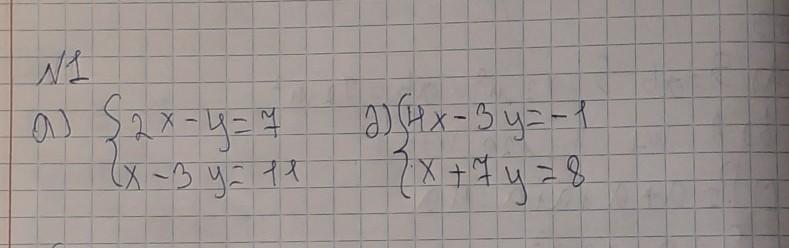 №1
а) {2x-y=7
{x-3y=11
д) {4x-3y=-1
{x+7y=8